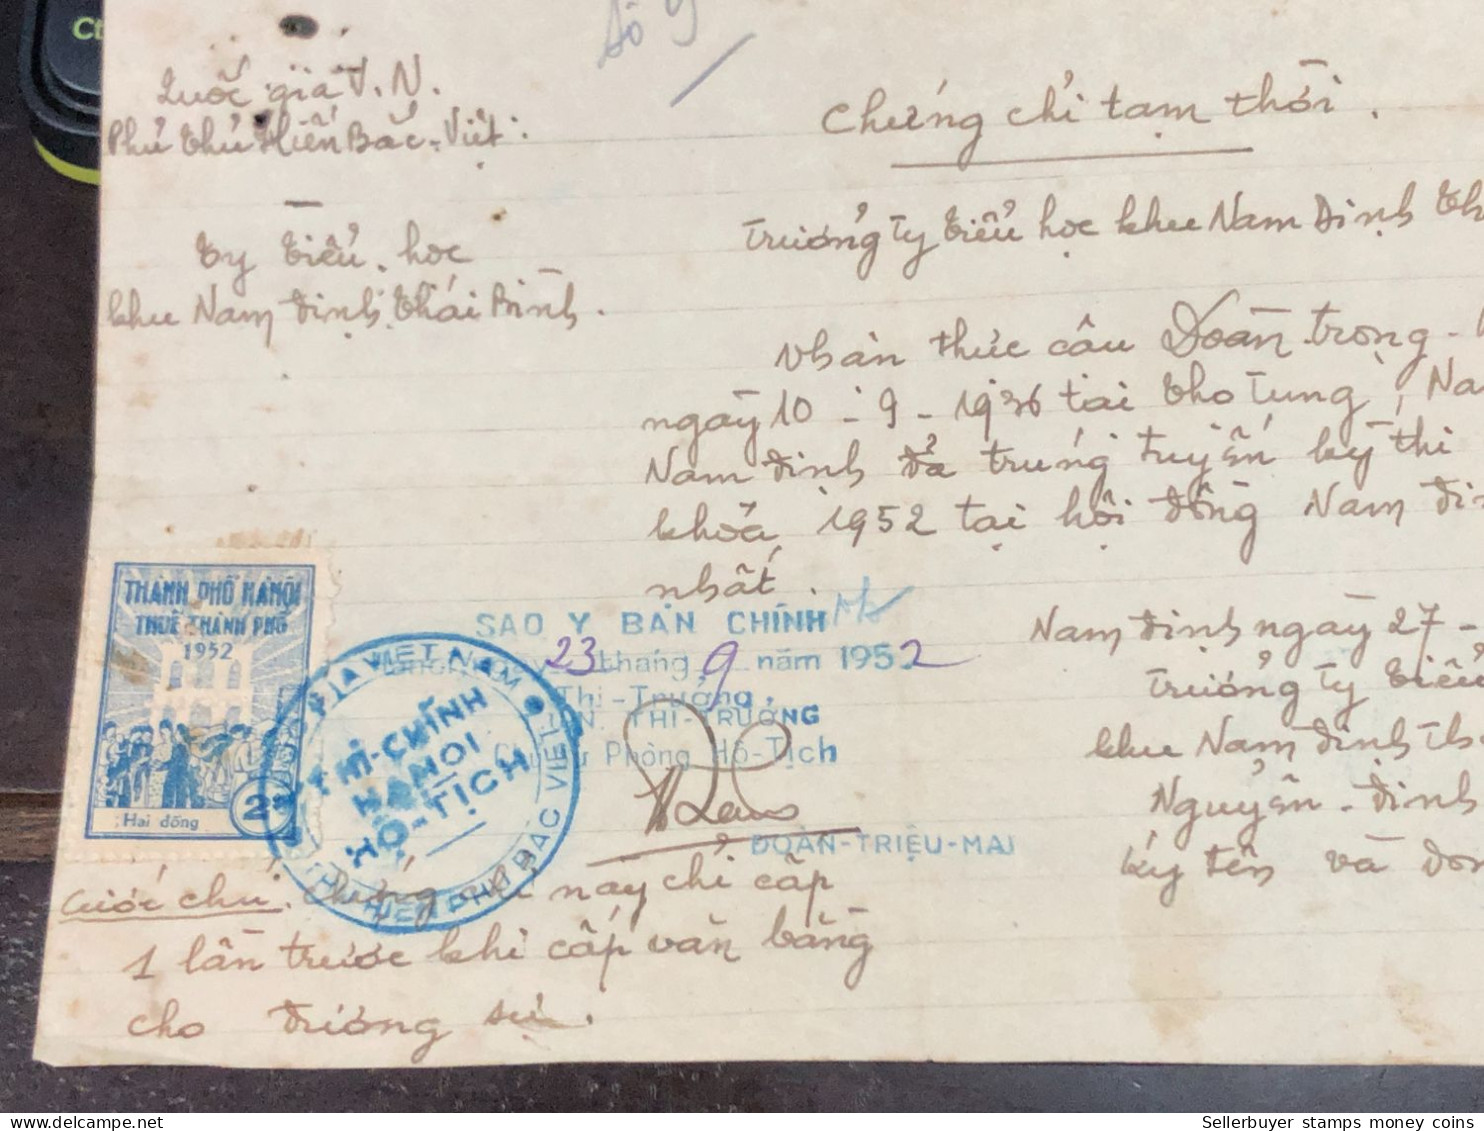 Số 9
Quốc gia V.N.
Phủ thủ Hiến Bắc-Việt.
Ty tiểu học
khu Nam định Thái Bình.
Chứng chỉ tạm thời.
Trưởng Ty tiểu học khu Nam Định Th
nhận thức cậu Doãn trọng
ngày 10-9-1936 tại Thọ Tung, Na
Nam định đã trúng tuyển kỳ thi
khóa 1952 tại hội đồng Nam đị
nhất.
Nam định ngày 27-
Trưởng Ty tiểu
khu Nam định Th
Nguyễn-đình
ký tên và đón
THÀNH PHỐ HANỘI
THUẾ THÀNH PHỐ
1952
2đ
Hai đồng
SAO Y BẢN CHÍNH
23 tháng 9 năm 1952
Thị-Trưởng,
T.U.N. THỊ-TRƯỞNG
Phòng Hộ-Tịch
ĐOÀN-TRIỆU-MAI
GIA VIET NAM
THỦ HIẾN PHỦ BẮC VIỆT
THỊ-CHÍNH
HANOI
HỘ-TỊCH
Cước chú. Chứng chỉ này chỉ cấp
1 lần trước khi cấp văn bằng
cho đương sự.
Sellerbuyer stamps money coins